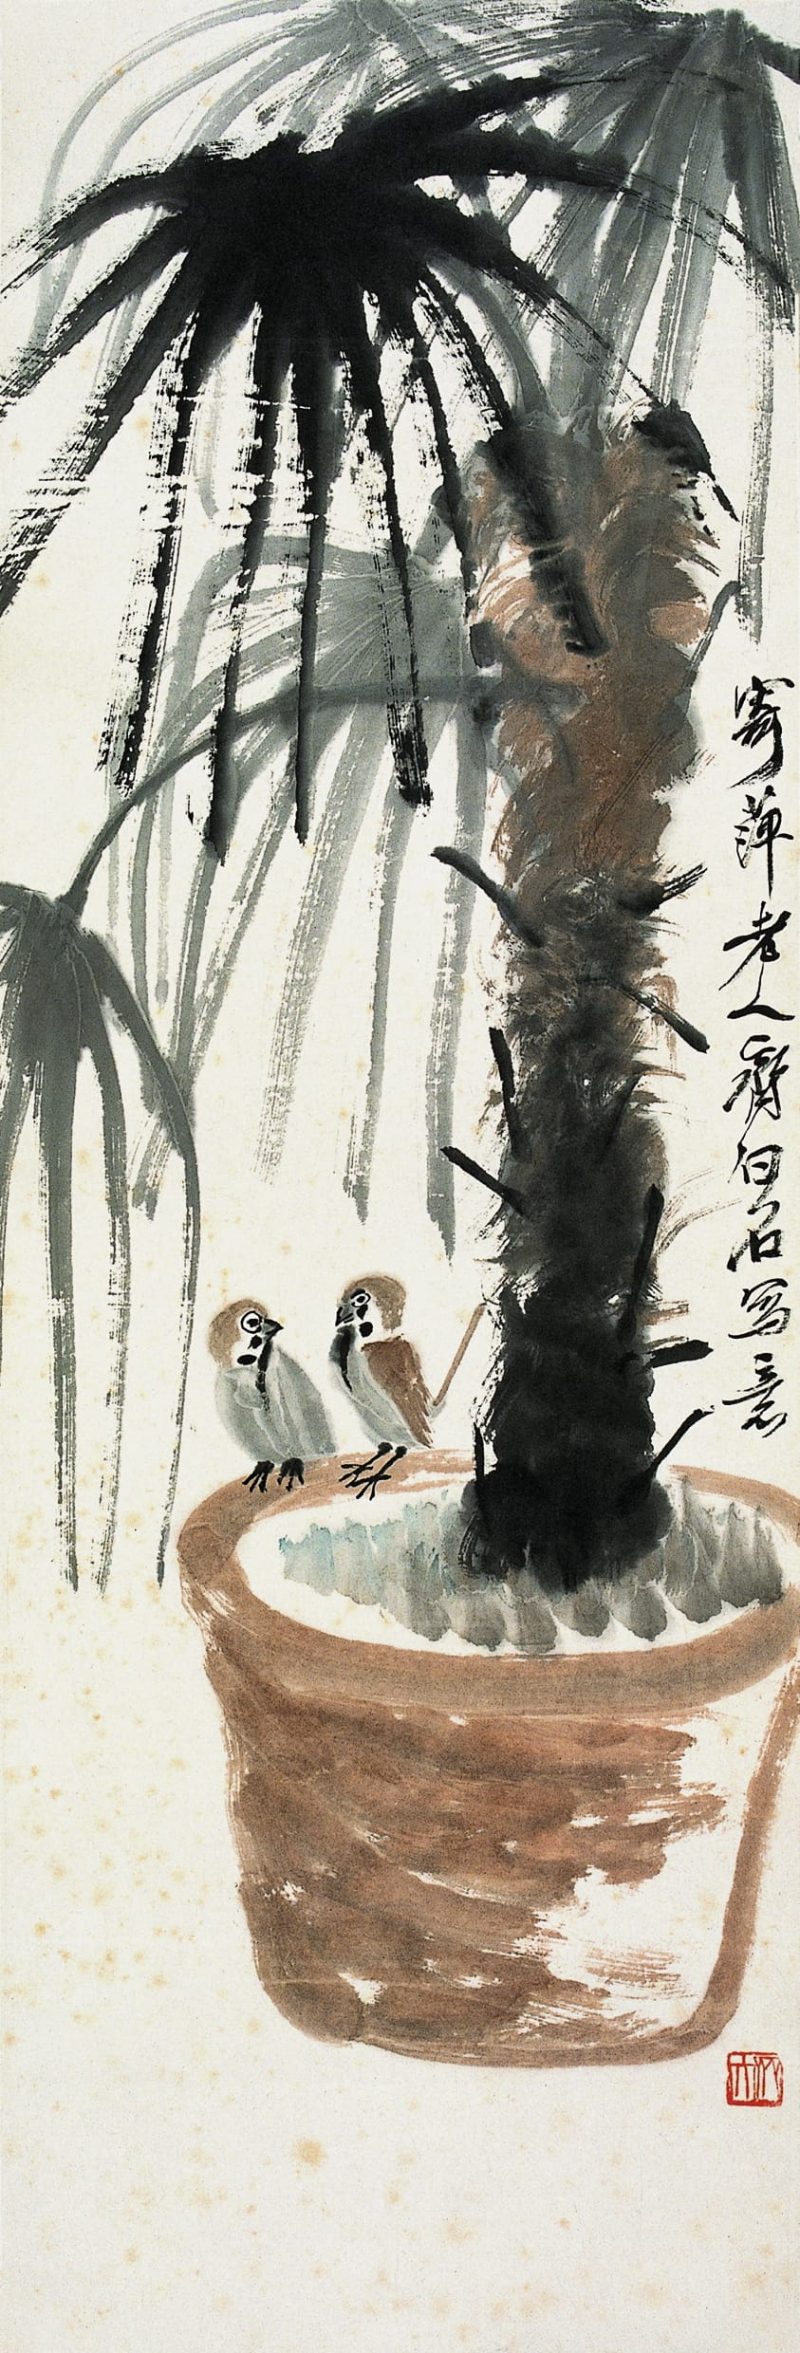 寄萍老人齊白石寫意
木人